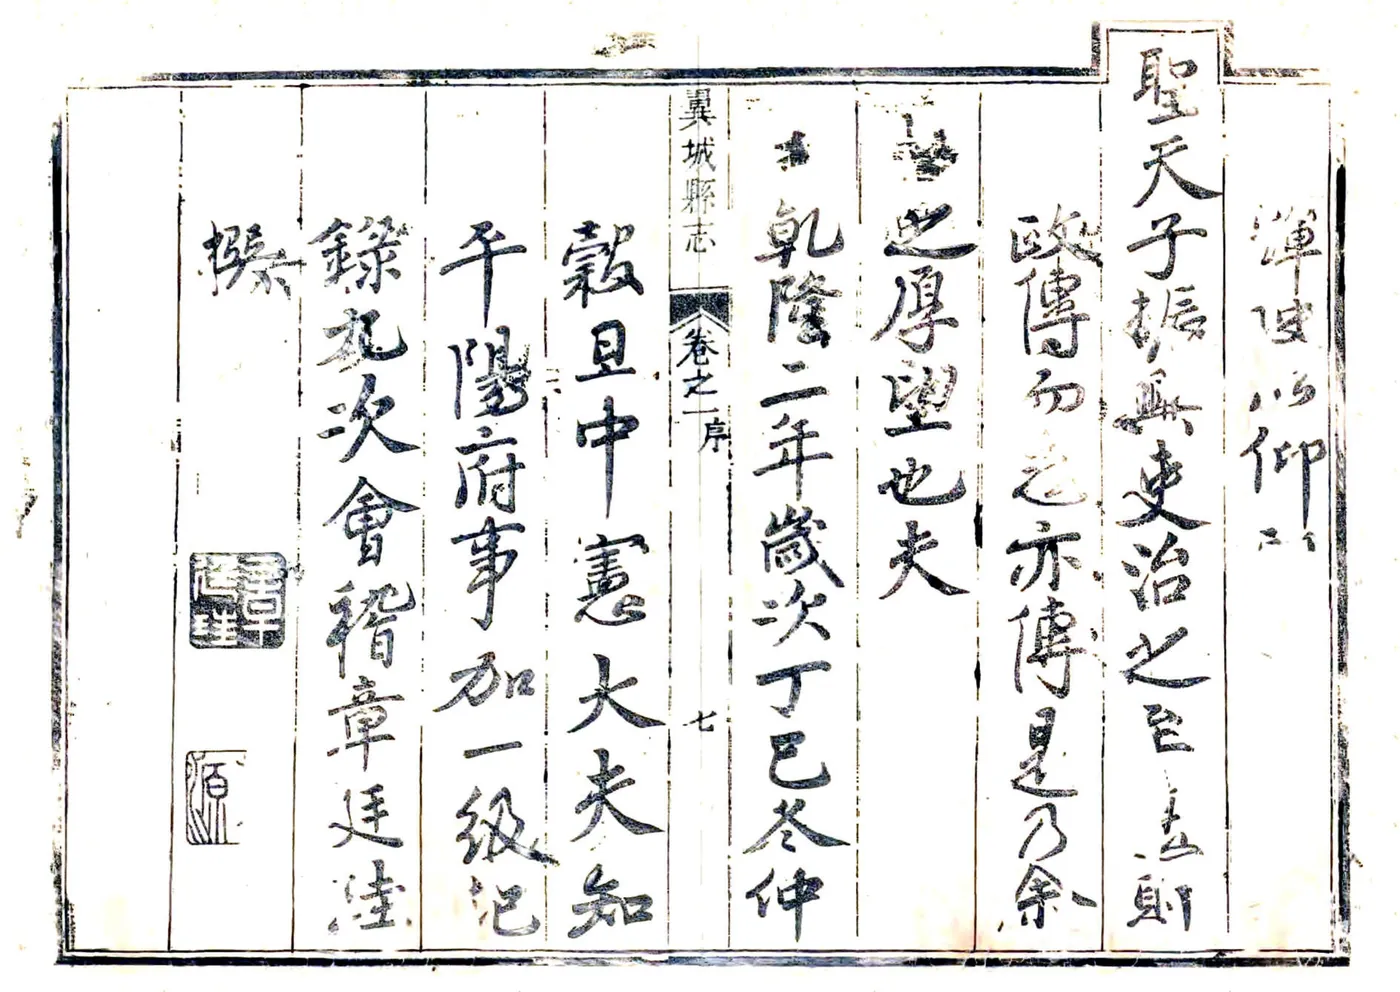 渾
以仰
聖天子振興吏治之至意則
政傳而志亦傳是乃余
之厚望也夫
乾隆二年歲次丁巳冬仲
翼城縣志
卷之一序
七
穀旦中憲大夫知
平陽府事加一級紀
錄九次會稽章廷
撰
源